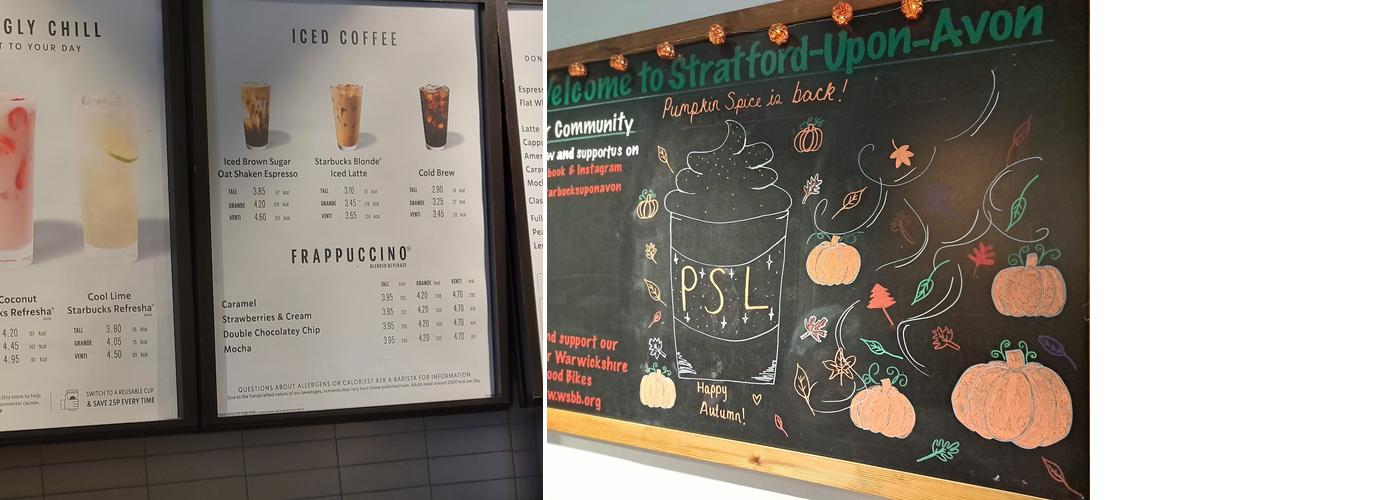 GLY CHILL
T TO YOUR DAY
Coconut
ks Refresha®
4.20
4.45
4.95
Cool Lime
Starbucks Refresha®
TALL 3.80
GRANDE 4.05
VENTI 4.50
this store to help
SWITCH TO A REUSABLE CUP
& SAVE 25P EVERY TIME
ICED COFFEE
Iced Brown Sugar
Oat Shaken Espresso
TALL 3.85
GRANDE 4.20
VENTI 4.60
Starbucks Blonde®
Iced Latte
TALL 3.10
GRANDE 3.45
VENTI 3.65
Cold Brew
TALL 2.90
GRANDE 3.25
VENTI 3.45
FRAPPUCCINO®
BLENDED BEVERAGE
TALL kcal GRANDE kcal VENTI kcal
Caramel 3.95 4.20 4.70
Strawberries & Cream 3.95 4.20 4.70
Double Chocolatey Chip 3.95 4.20 4.70
Mocha 3.95 4.20 4.70
QUESTIONS ABOUT ALLERGENS OR CALORIES? ASK A BARISTA FOR INFORMATION
Due to the handcrafted nature of our beverages, nutrients may vary from those published here. Adults need around 2000 kcal per day.
DON
Espress
Flat Wh
Latte
Cappu
Amer
Caran
Moch
Class
Full
Pea
Welcome to Stratford-Upon-Avon
Pumpkin Spice is back!
r Community
w and support us on
book & Instagram
arbucksuponavon
PSL
nd support our
r Warwickshire
ood Bikes
w.wsbb.org
Happy
Autumn!